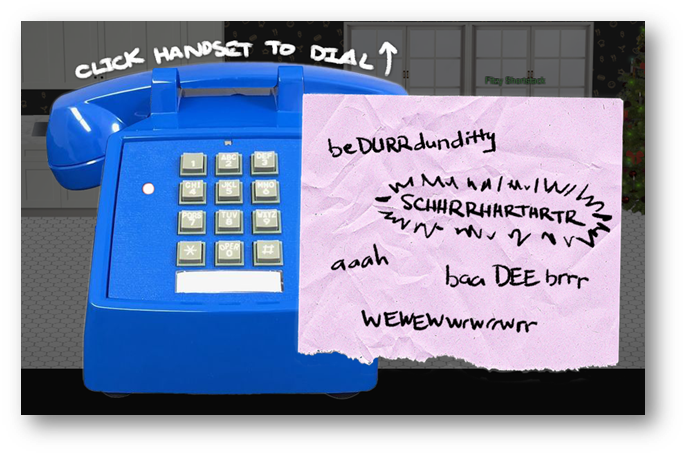 CLICK HANDSET TO DIAL ↑
Play Bhamtock
1
ABC
2
DEF
3
GHI
4
JKL
5
MNO
6
PQRS
7
TUV
8
WXYZ
9
*
OPER
0
#
beDURRdunditty
SCHHRRHHRTHRTR
aaah
baa DEE brrr
WEWEWwrwrrwrr